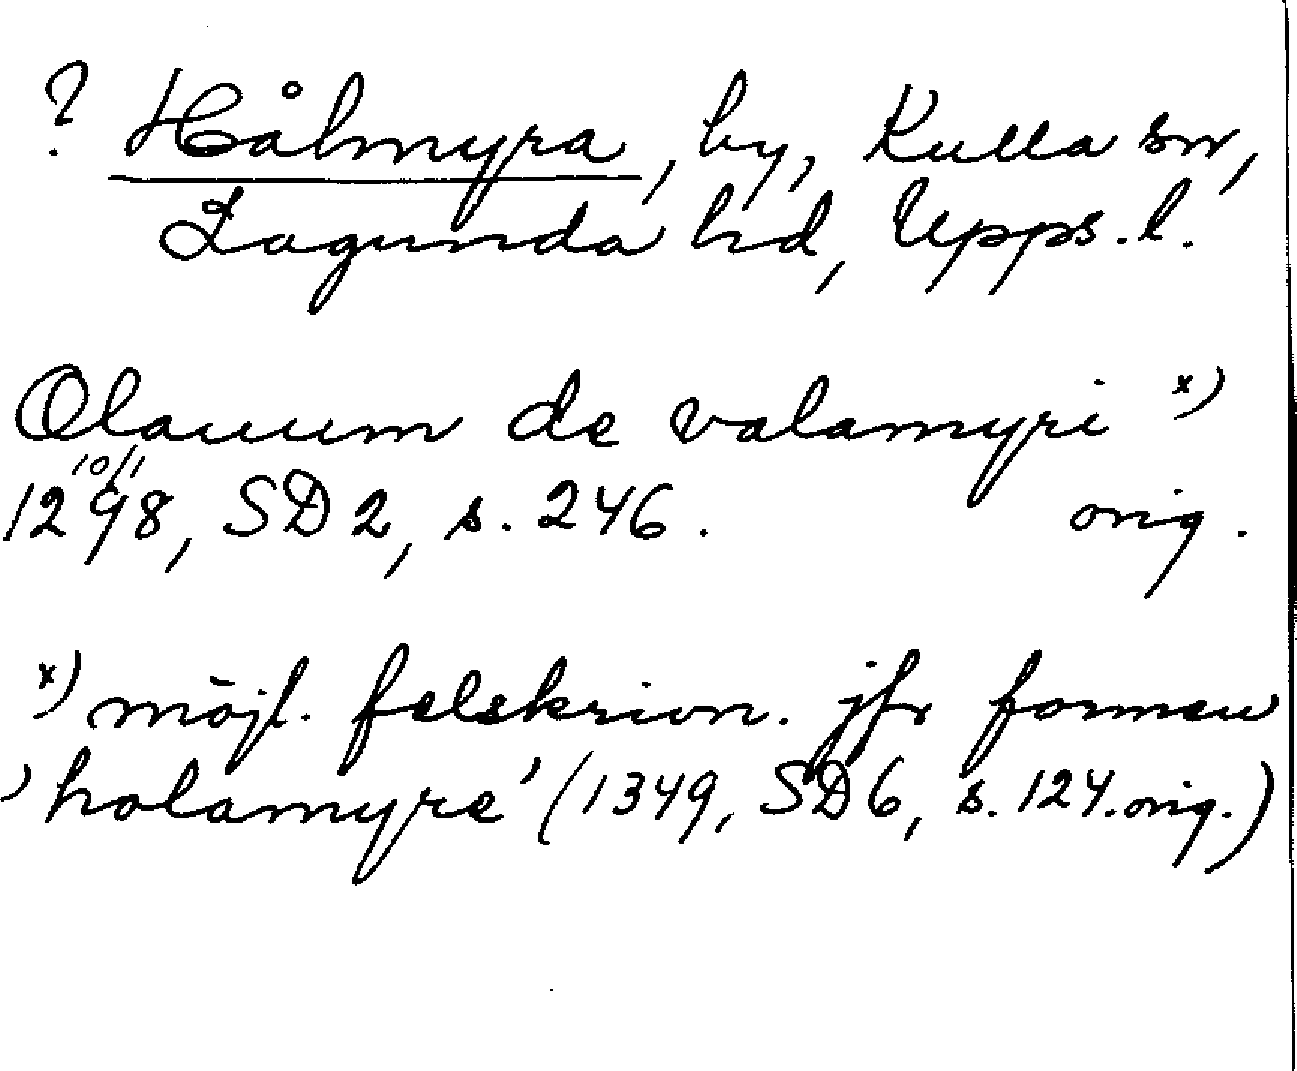 ? Hålmyra, by, Kulla sn,
Lagunda hd, Upps. l.
Olauum de valamyri x)
10/1
1298, SD 2, s. 246. orig.
x) möjl. felskrivn. jfr formen
'holamyre' (1349, SD 6, s. 124. orig.)